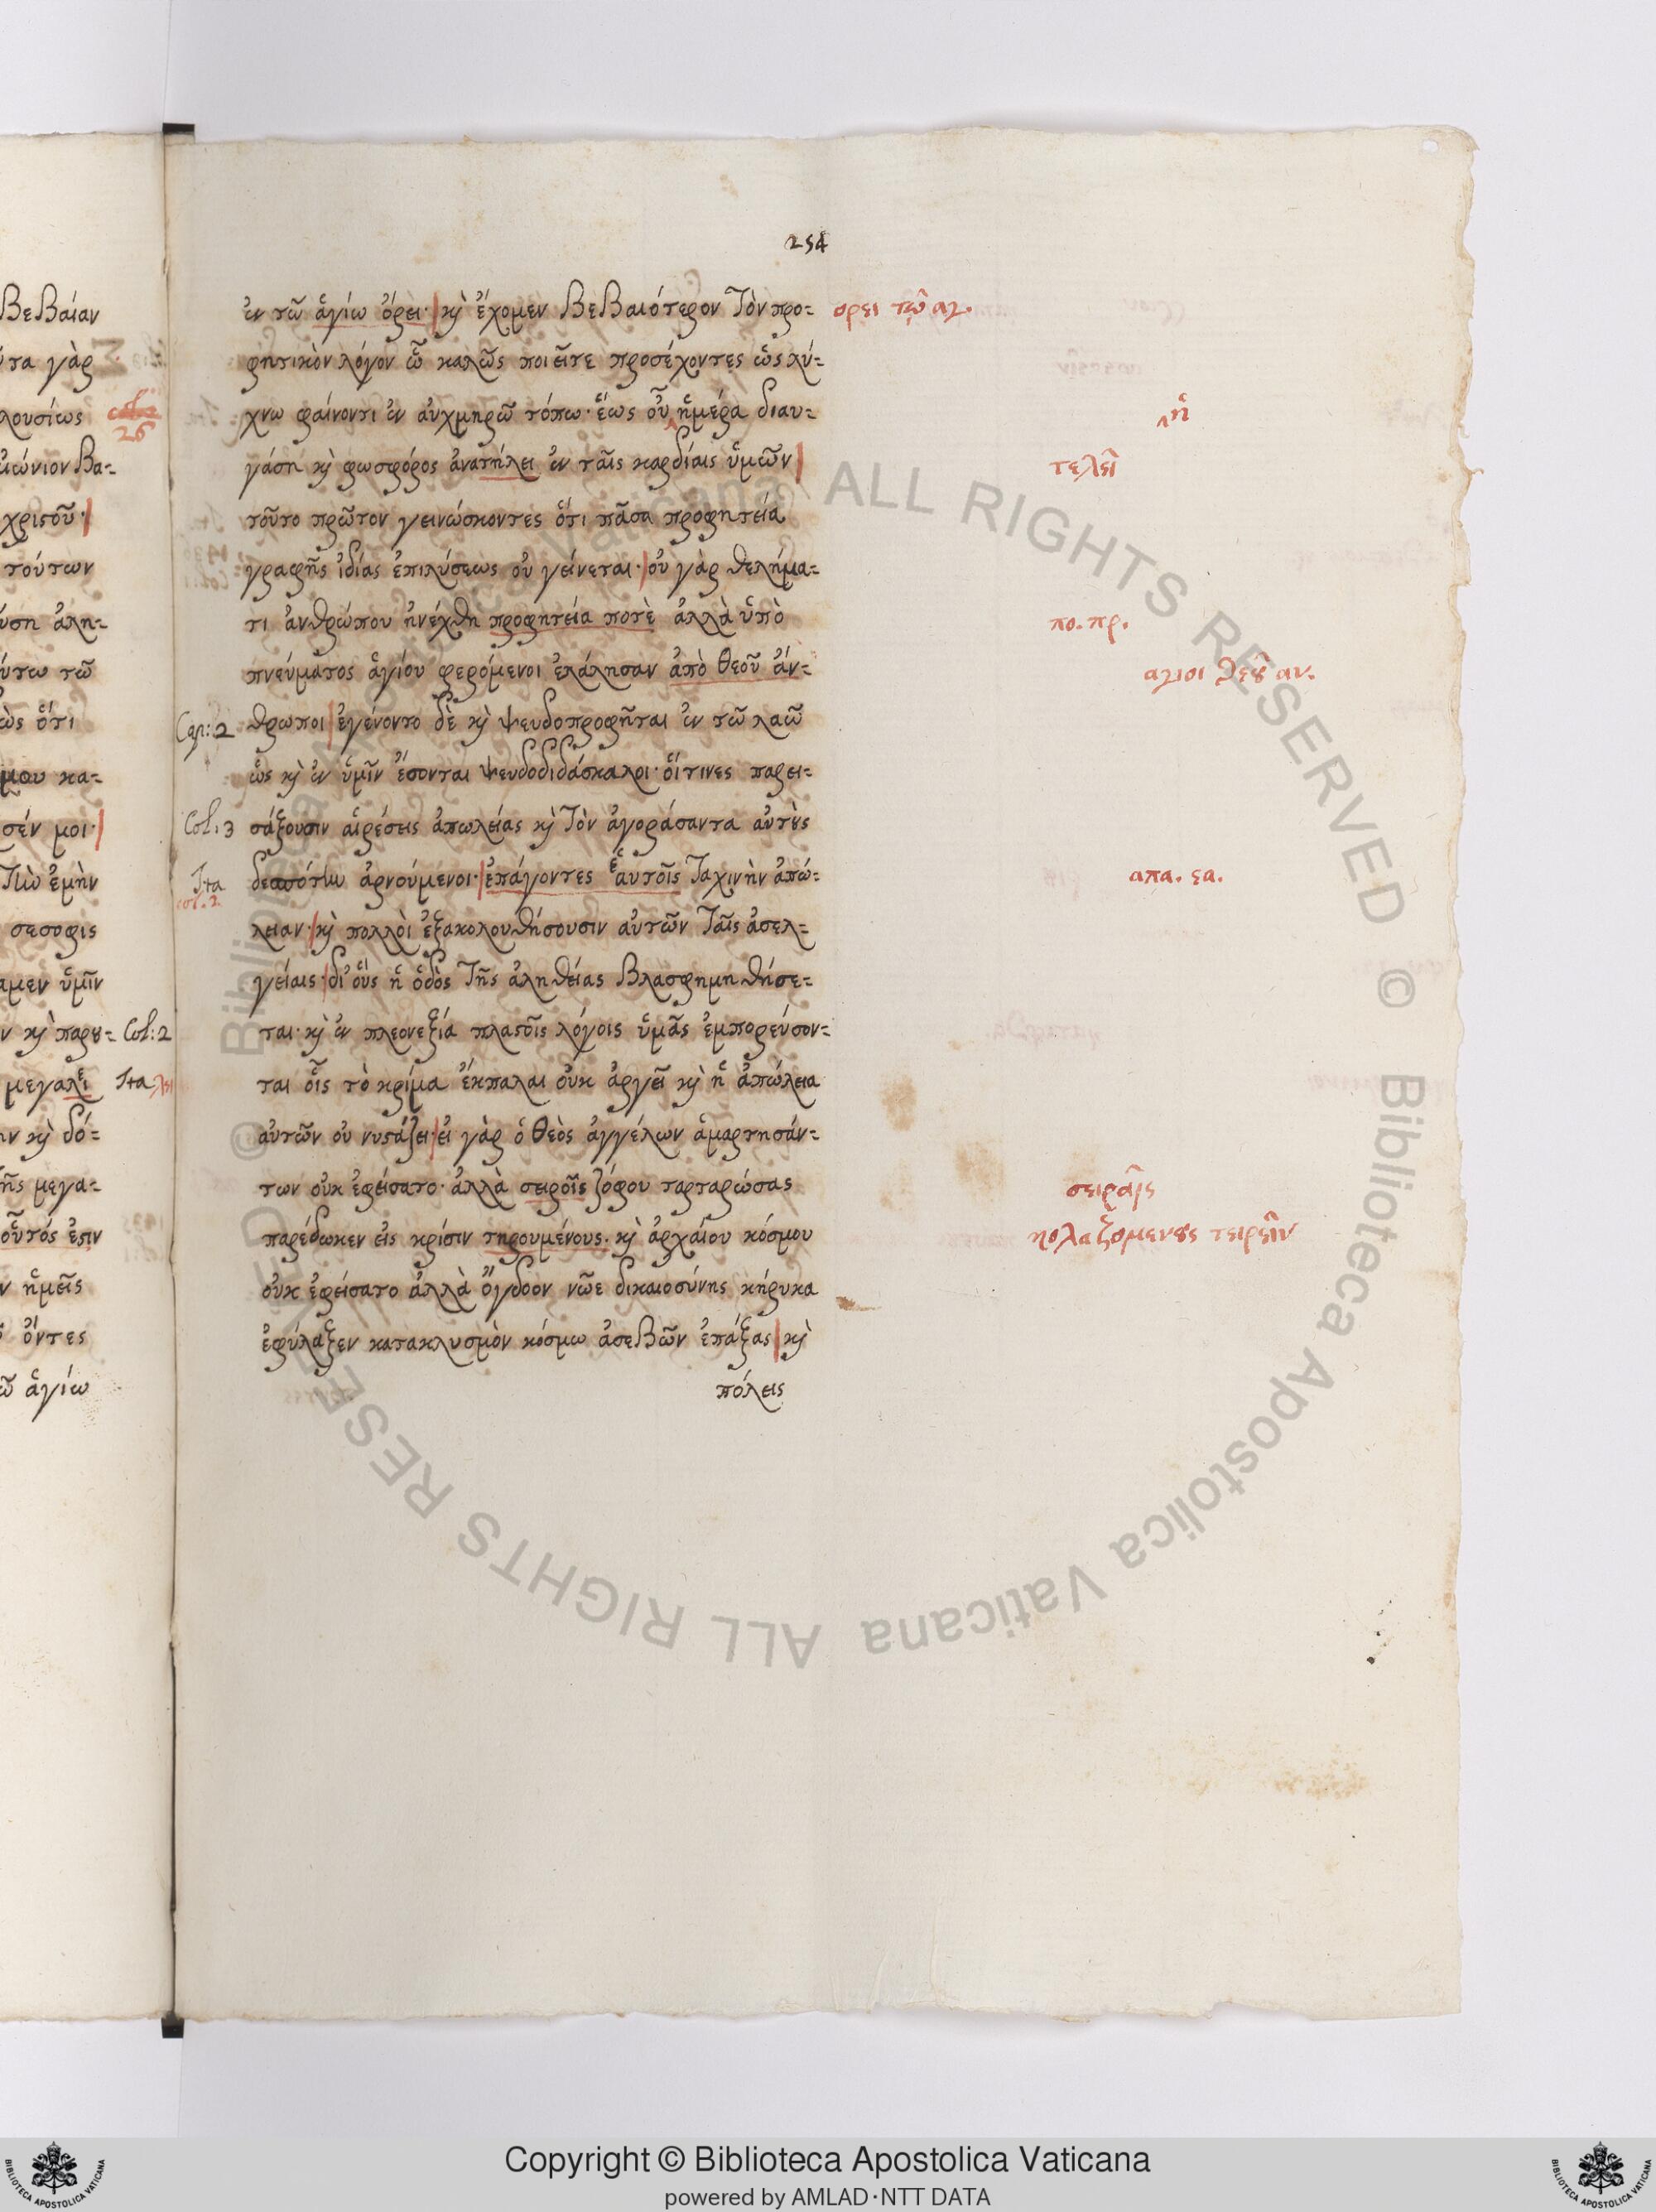 Βεβαίαν
τα γὰρ
λουσίως
26
ώνιον βα-
χριστοῦ·
τούτων
ύση ἀλη-
τῶ
ὡς ὅτι
μου κα-
σέν μοι·
τὴν ἐμὴν
σεσοφις
αμεν ὑμῖν
ν κὶ παρου-
μεγαλει
ν κὶ δό-
ῆς μεγα-
οὗτός ἐστιν
ν ἡμεῖς
ὄντες
ῶ ἁγίω
254
ἐν τῶ ἁγίω ὄρει· κὶ ἔχομεν Βεβαιότερον τὸν προ= ορει τῷ αγ.
φητικὸν λόγον ᾧ καλῶς ποιεῖτε προσέχοντες ὡς λύ=
χνω φαίνοντι ἐν αὐχμηρῶ τόπω· ἕως οὗ ἡμέρα διαυ= ἡ
γάση κὶ φωσφόρος ἀνατήλει ἐν ταῖς καρδίαις ὑμῶν τελεῖ
τοῦτο πρῶτον γεινώσκοντες ὅτι πᾶσα προφητεία
γραφῆς ἰδίας ἐπιλύσεως οὐ γείνεται· οὐ γὰρ θελήμα=
τι ἀνθρώπου ἠνέχθη προφητεία ποτὲ ἀλλὰ ὑπὸ πο. πρ.
πνεύματος ἁγίου φερόμενοι ἐλάλησαν ἀπὸ θεοῦ ἄν= αγιοι θεοῦ αν.
Cap: 2 θρωποι ἐγένοντο δὲ κὶ ψευδοπροφῆται ἐν τῶ λαῶ
ὡς κὶ ἐν ὑμῖν ἔσονται ψευδοδιδάσκαλοι· οἵτινες παρει=
Col: 3 σάξουσιν αἱρέσεις ἀπωλείας κὶ τὸν ἀγοράσαντα αὐτοὺς
Ita δεσπότην ἀρνούμενοι· ἐπάγοντες ἑαυτοῖς ταχινὴν ἀπώ= απα. εα.
col. 2
λειαν· κὶ πολλοὶ ἐξακολουθήσουσιν αὐτῶν ταῖς ἀσελ=
γείαις· δι' οὓς ἡ ὁδὸς τῆς ἀληθείας βλασφημηθήσε=
Col: 2 ται· κὶ ἐν πλεονεξία πλαστοῖς λόγοις ὑμᾶς ἐμπορεύσον=
Ita λει ται οἷς τὸ κρίμα ἔκπαλαι οὐκ ἀργεῖ κὶ ἡ ἀπώλεια
αὐτῶν οὐ νυστάζει· εἰ γὰρ ὁ θεὸς ἀγγέλων ἁμαρτησάν=
των οὐκ ἐφείσατο· ἀλλὰ σειροῖς ζόφου ταρταρώσας σειραῖς
παρέδωκεν εἰς κρίσιν τηρουμένους· κὶ ἀρχαίου κόσμου κολαζομενους τειρεῖν
οὐκ ἐφείσατο ἀλλὰ ὄγδοον νῶε δικαιοσύνης κήρυκα
ἐφύλαξεν κατακλυσμὸν κόσμω ἀσεβῶν ἐπάξας κὶ
πόλεις
© Biblioteca Apostolica Vaticana ALL RIGHTS RESERVED © Biblioteca Apostolica Vaticana ALL RIGHTS RESERVED
Copyright © Biblioteca Apostolica Vaticana
powered by AMLAD·NTT DATA
BIBLIOTECA APOSTOLICA VATICANA
BIBLIOTECA APOSTOLICA VATICANA